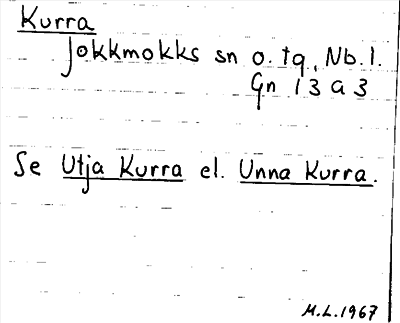 Kurra
Jokkmokks sn o. tg, Nb. l.
Gn 13 a 3
Se Utja Kurra el. Unna Kurra.
M.L.1967